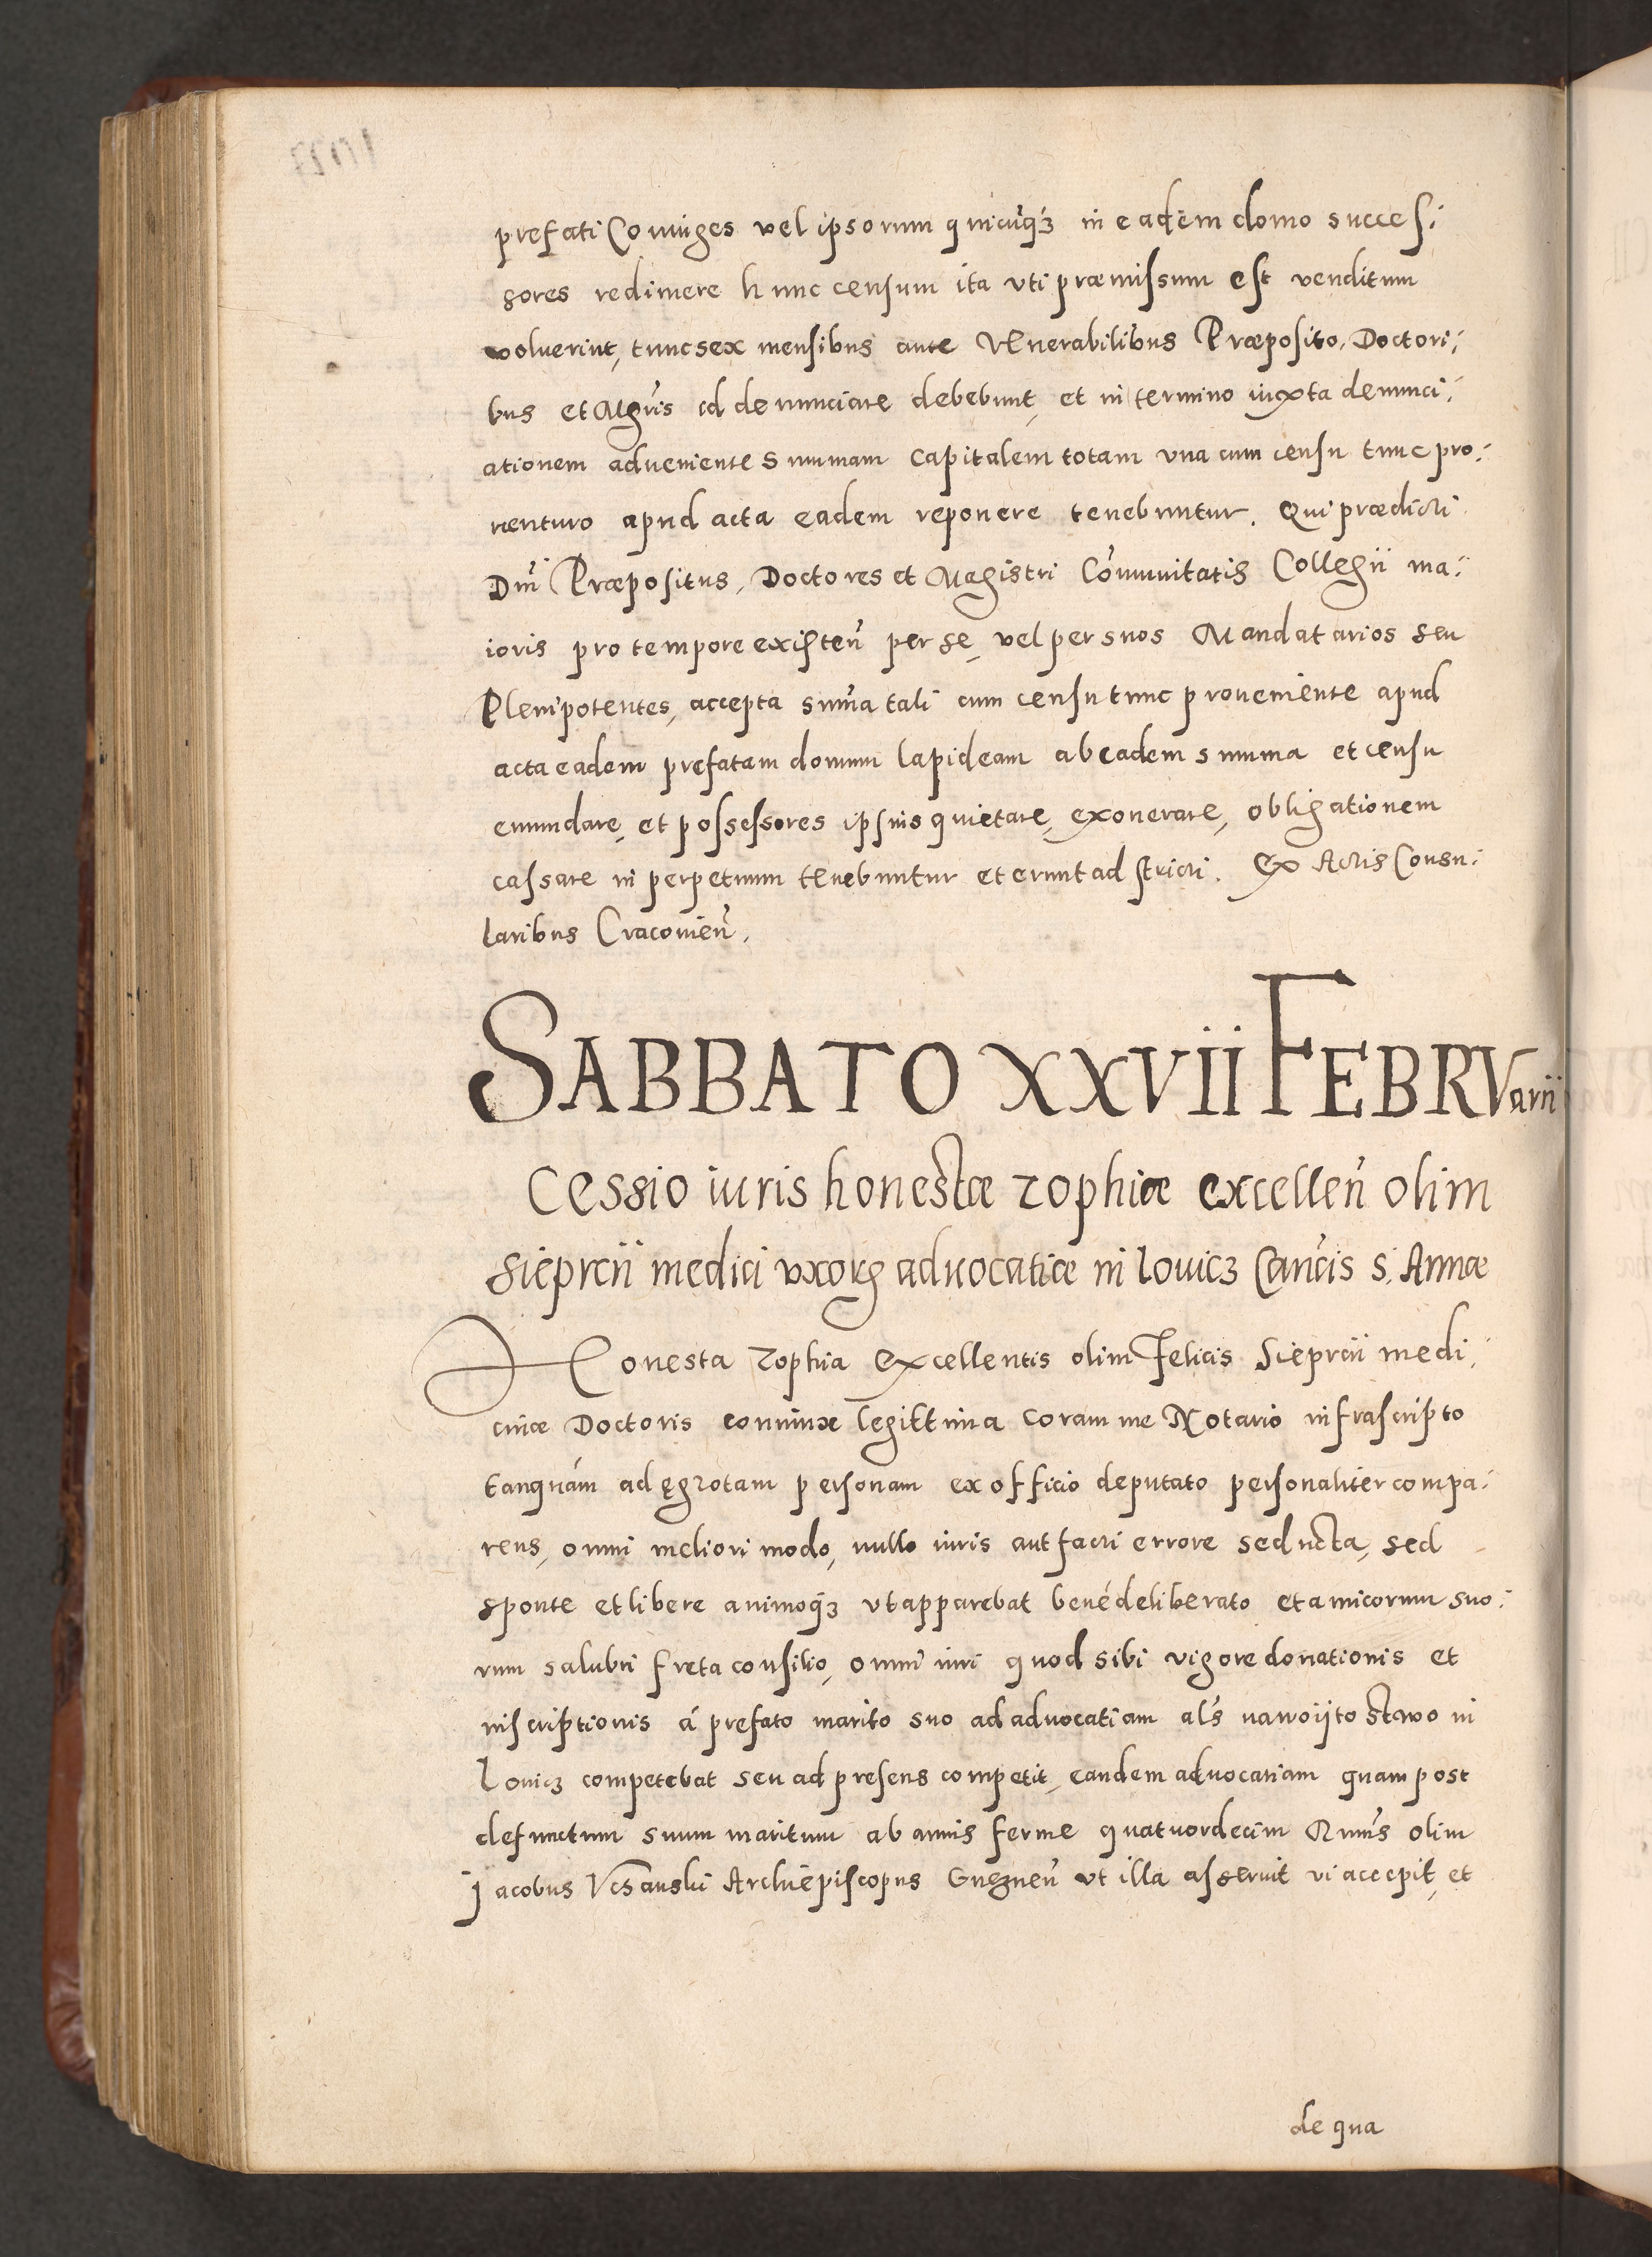 prefati Coniuges vel ipsorum quicūq₃ in eadem domo succeſ:
sores redimere hunc censum ita vti præmissum est venditum
voluerint, tunc sex mensibus ante Venerabilibus Præposito, Doctori:
bus et Mgr̄is id denunciare debebunt, et in termino iuxta denunci:
ationem adueniente summam capitalem totam vna cum censu tunc pro:
uenturo apud acta eadem reponere tenebuntur. Qui prædicti
Dn̄i Præpositus, Doctores et Magistri Cōmunitatis Collegii ma:
ioris pro tempore existeñ per se, vel per suos Mandatarios seu
Plenipotentes, accepta sum̄a tali cum censu tunc proueniente apud
acta eadem prefatam domum lapideam ab eadem summa et censu
emundare, et possessores ipsius quietare, exonerare, obligationem
cassare in perpetuum tenebuntur et erunt adstricti. Ex Actis Consu:
laribus Cracovieñ.
SABBATO XXVII FEBRVarii
Cessio iuris honestæ Zophiæ excelleñ olim
Sieprcii medici vxoris advocatiæ in Lovicz Canc̄is S. Annæ
Honesta Zophia Excellentis olim Felicis Sieprcii medi:
cinæ Doctoris coniunx legittima coram me Notario infrascripto
tanquám ad ęgrotam personam ex officio deputato personaliter compa:
rens, omni meliori modo, nullo iuris aut facti errore seducta, sed
sponte et libere animoq₃ vt apparebat bené deliberato et amicorum suo:
rum salubri freta consilio, omni iuri quod sibi vigore donationis et
inscriptionis á prefato marito suo ad advocatiam al̄s na woijtostwo in
Lovicz competebat seu ad presens competit, eandem advocatiam quam post
defunctum suum maritum ab annis ferme quatuordecim Rm̄us olim
Jacobus Vchanski Archiepiscopus Gnezneñ vt illa asseruit vi accepit, et
de qua